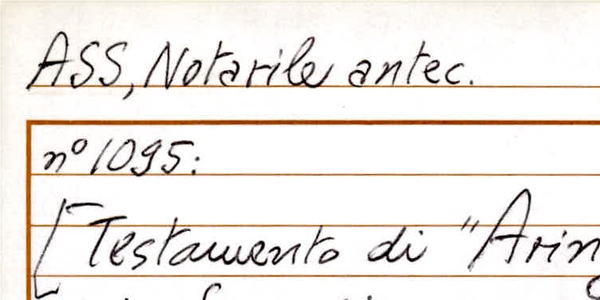 ASS, Notarile antec.
n° 1095:
[Testamento di "Arin